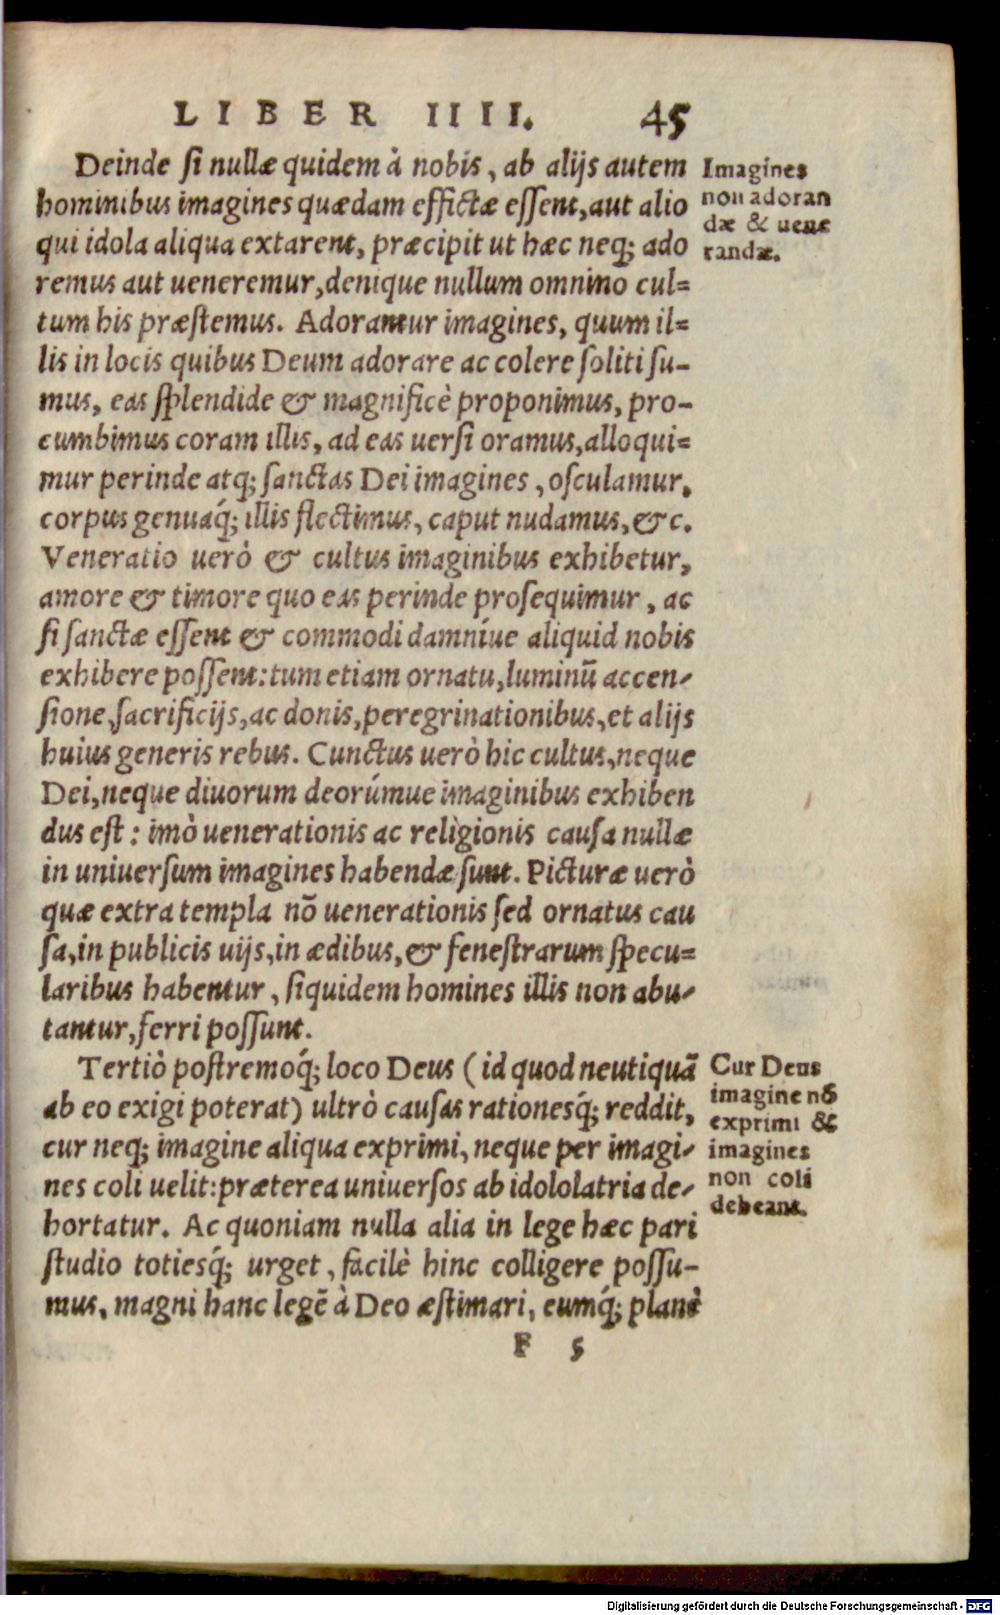 LIBER IIII. 45
Deinde si nullæ quidem à nobis, ab alijs autem
hominibus imagines quædam effictæ essent, aut alio
qui idola aliqua extarent, præcipit ut hæc neq; ado
remus aut ueneremur, denique nullum omnino cul=
tum his præstemus. Adorantur imagines, quum il=
lis in locis quibus Deum adorare ac colere soliti su-
mus, eas splendide & magnificè proponimus, pro-
cumbimus coram illis, ad eas uersi oramus, alloqui=
mur perinde atq; sanctas Dei imagines, osculamur,
corpus genuaq́; illis flectimus, caput nudamus, &c.
Veneratio uerò & cultus imaginibus exhibetur,
amore & timore quo eas perinde prosequimur, ac
si sanctæ essent & commodi damníue aliquid nobis
exhibere possent: tum etiam ornatu, luminũ accen-
sione, sacrificijs, ac donis, peregrinationibus, et alijs
huius generis rebus. Cunctus uerò hic cultus, neque
Dei, neque diuorum deorúmue imaginibus exhiben
dus est: imò uenerationis ac religionis causa nullæ
in uniuersum imagines habendæ sunt. Picturæ uerò
quæ extra templa nõ uenerationis sed ornatus cau
sa, in publicis uijs, in ædibus, & fenestrarum specu=
laribus habentur, siquidem homines illis non abu-
tantur, ferri possunt.
Tertiò postremoq́; loco Deus (id quod neutiquã
ab eo exigi poterat) ultrò causas rationesq́; reddit,
cur neq; imagine aliqua exprimi, neque per imagi-
nes coli uelit: præterea uniuersos ab idololatria de-
hortatur. Ac quoniam nulla alia in lege hæc pari
studio totiesq́; urget, facilè hinc colligere possu-
mus, magni hanc legẽ à Deo æstimari, eumq́; planè
F 5
Imagines
non adoran
dæ & uene
randæ.
Cur Deus
imagine nõ
exprimi &
imagines
non coli
debeant.
Digitalisierung gefördert durch die Deutsche Forschungsgemeinschaft - DFG